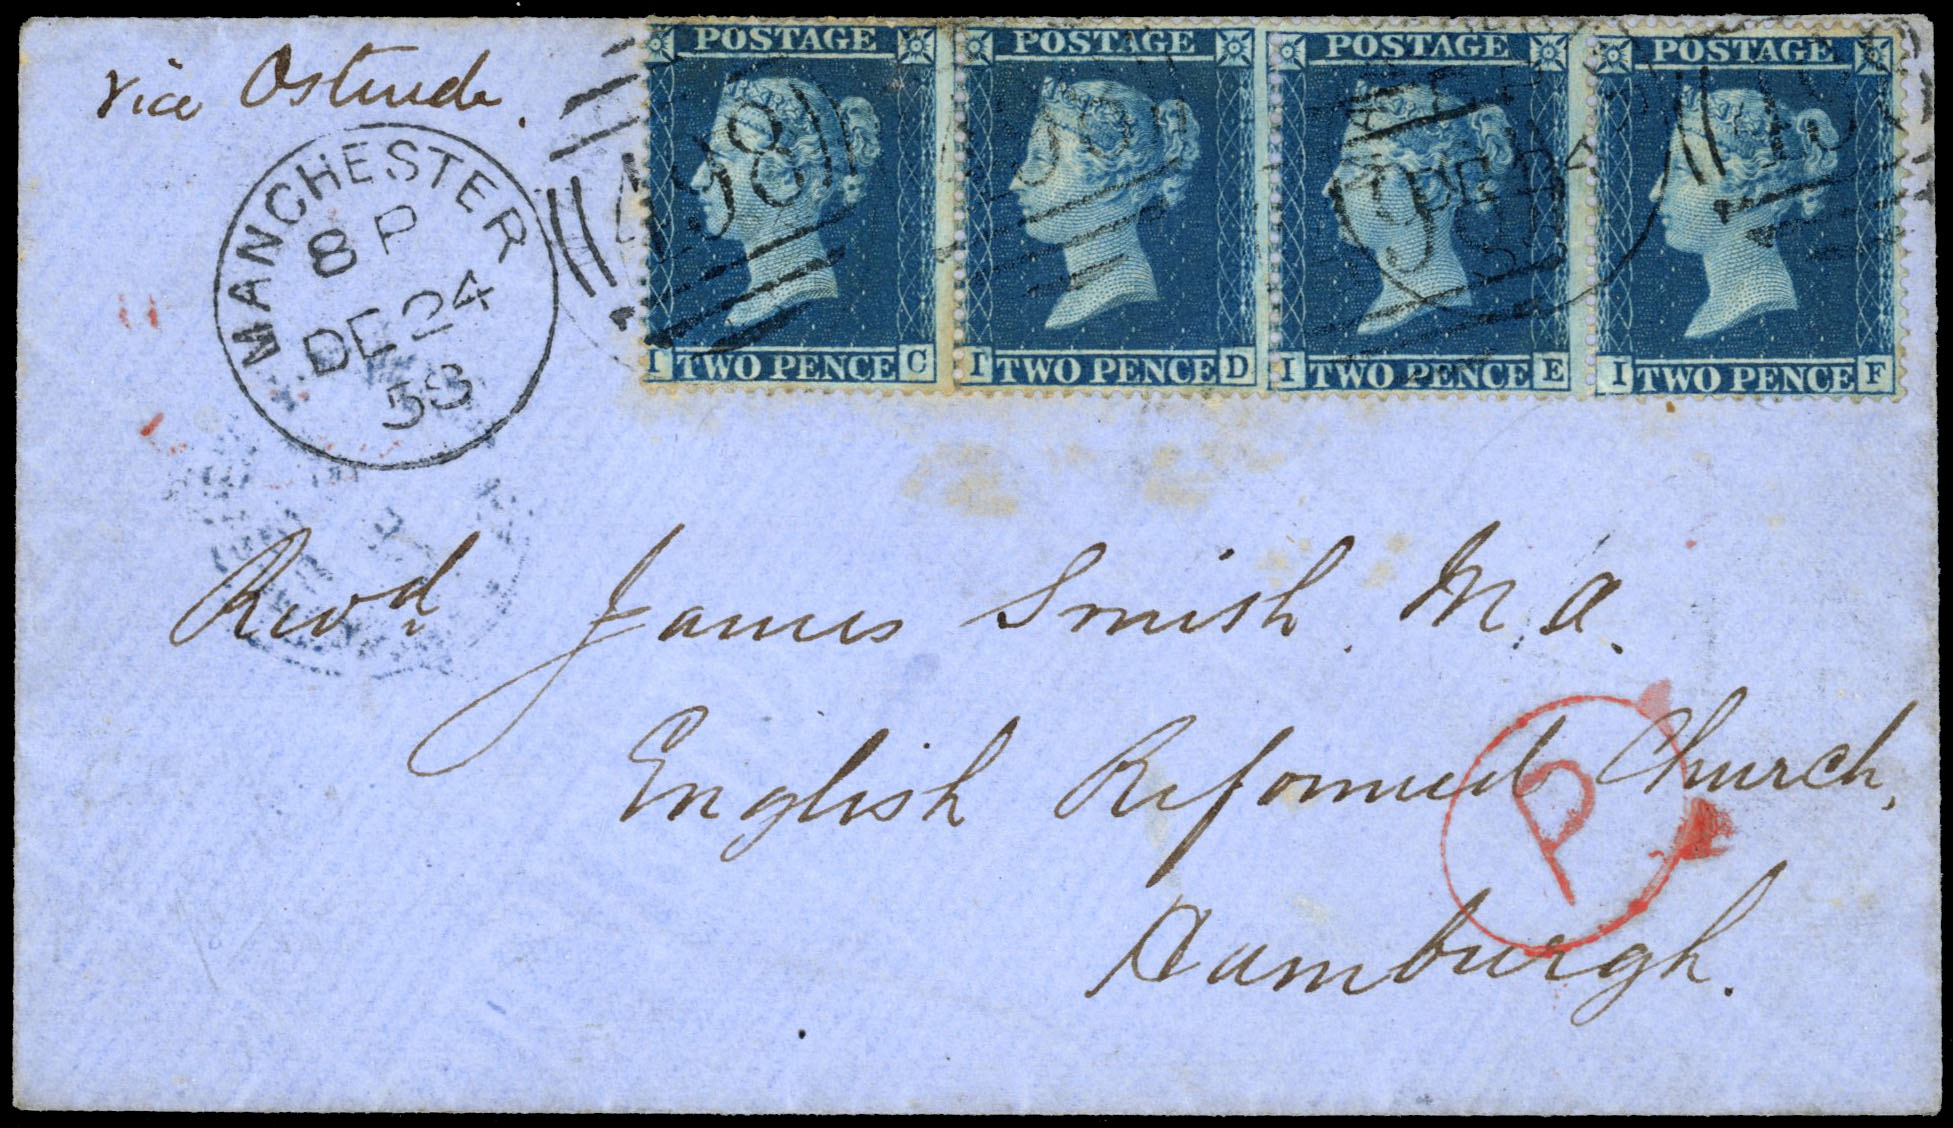 via Ostende.
POSTAGE POSTAGE POSTAGE POSTAGE
I TWO PENCE C I TWO PENCE D I TWO PENCE E I TWO PENCE F
498 498 498
MANCHESTER
8 P
DE 24
58
Revd James Smith. M.A.
English Reformed Church,
Hamburgh.
P